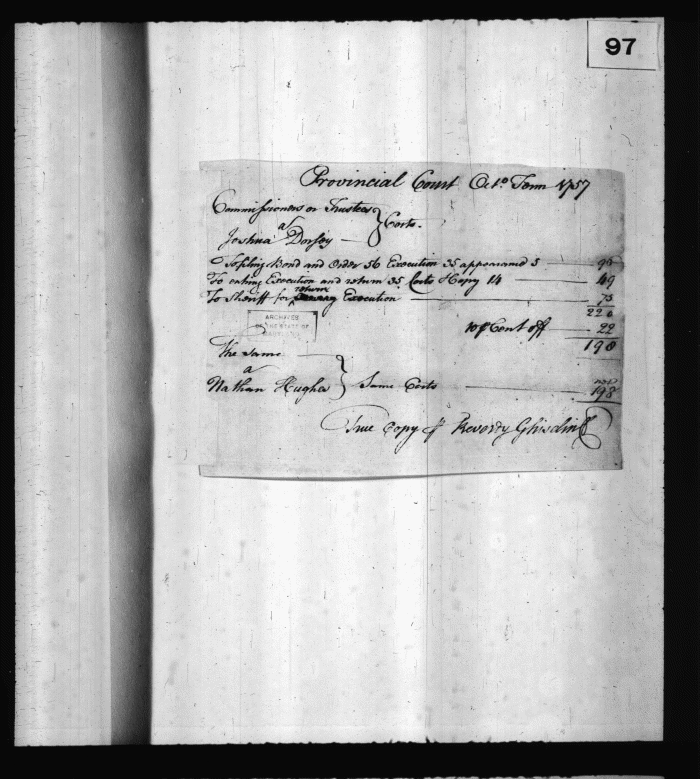 97
Provincial Court Octo. Term 1757
Commissioners or Trustees
as
Joshua Dorsey } Costs.
To filing Bond and Order 56 Execution 35 appearance 5 — 96
To entring Execution and return 35 Costs & Copy 14 — 49
return
To Sheriff for Execution — 75
220
10 p Cent off — 22
198
ARCHIVES
OF THE STATE OF
MARYLAND
The same
a
Nathan Hughs } Same Costs — 198
True Copy p Reverdy Ghiselin